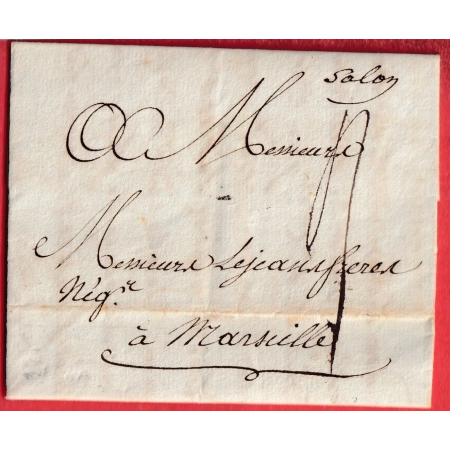 Salon
A Messieurs
Messieurs Lejeans freres
Négts
à Marseille